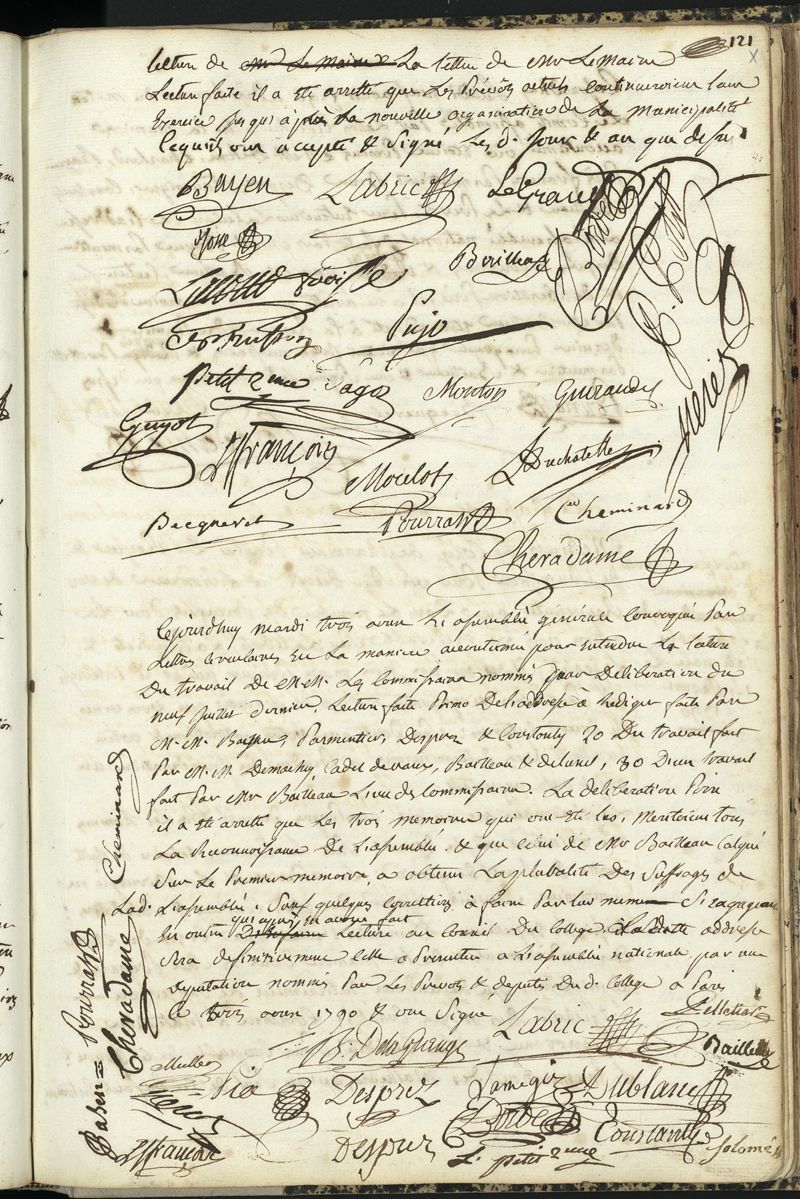 121
lecture de La lettre de Mr Le maire
Lecture faite il a ete arretté que Les Prevots actuels continueroient Leur
Exercice jusqu'apres La nouvelle organisation de La municipalité
lequils ont accepté & signé Les d. Jour & an que dessus
Bayen Labric LeGrand
Josse
Bataille
Pujo
Petit 2me Sago Monton Guiraudet
Guyot
Lfrançois
Moulot Duchatelle
Becqueret Pourrat Cheminard
Cheradame
Cejourdhuy mardi trois avril L'assemblée générale convoquée Par
Lettres circulaires en La maniere accoutumée pour entendre La lecture
Du travail De M.M. Les Commissaires nommés Par Deliberation du
neuf Juillet dernier, Lecture faite Primo De L'addresse redigée faite Par
M.M. Bayen, Parmentier, Desprez & Coustanty 20 Du travail fait
Par M.M. Demachy, Cadet devaux, Bataille & delunel, 30 D'un travail
fait Par Mr Bataille L'un des Commissaires. La deliberation Prise
il a ete arretté que Les trois memoires qui ont ete lus, meritoient tous
La Reconnoissance De L'assemblée & que celui de Mr Bataille calqué
Sur Le Premier memoire, a obtenu La pluralité Des Suffrages de
Lad. L'assemblée, Sauf quelques corrections à faire Par lui meme
En outre qui après en avoir fait Lecture au Comité Du College ladite addresse
Sera definitivement telle a Presenter a L'assemblée nationale par une
deputation nommée Par Les Prevots & deputés Dud. College a Paris
Le trois avril 1790 & ont Signé
Labric Pelletier
B. Delagrange
Muller Pia Desprez Jamegiz Dublanc
Coustanty
Lfrançois Desprez L. petit 2me Solomé
Cheminard
Pourrat
Cheradame